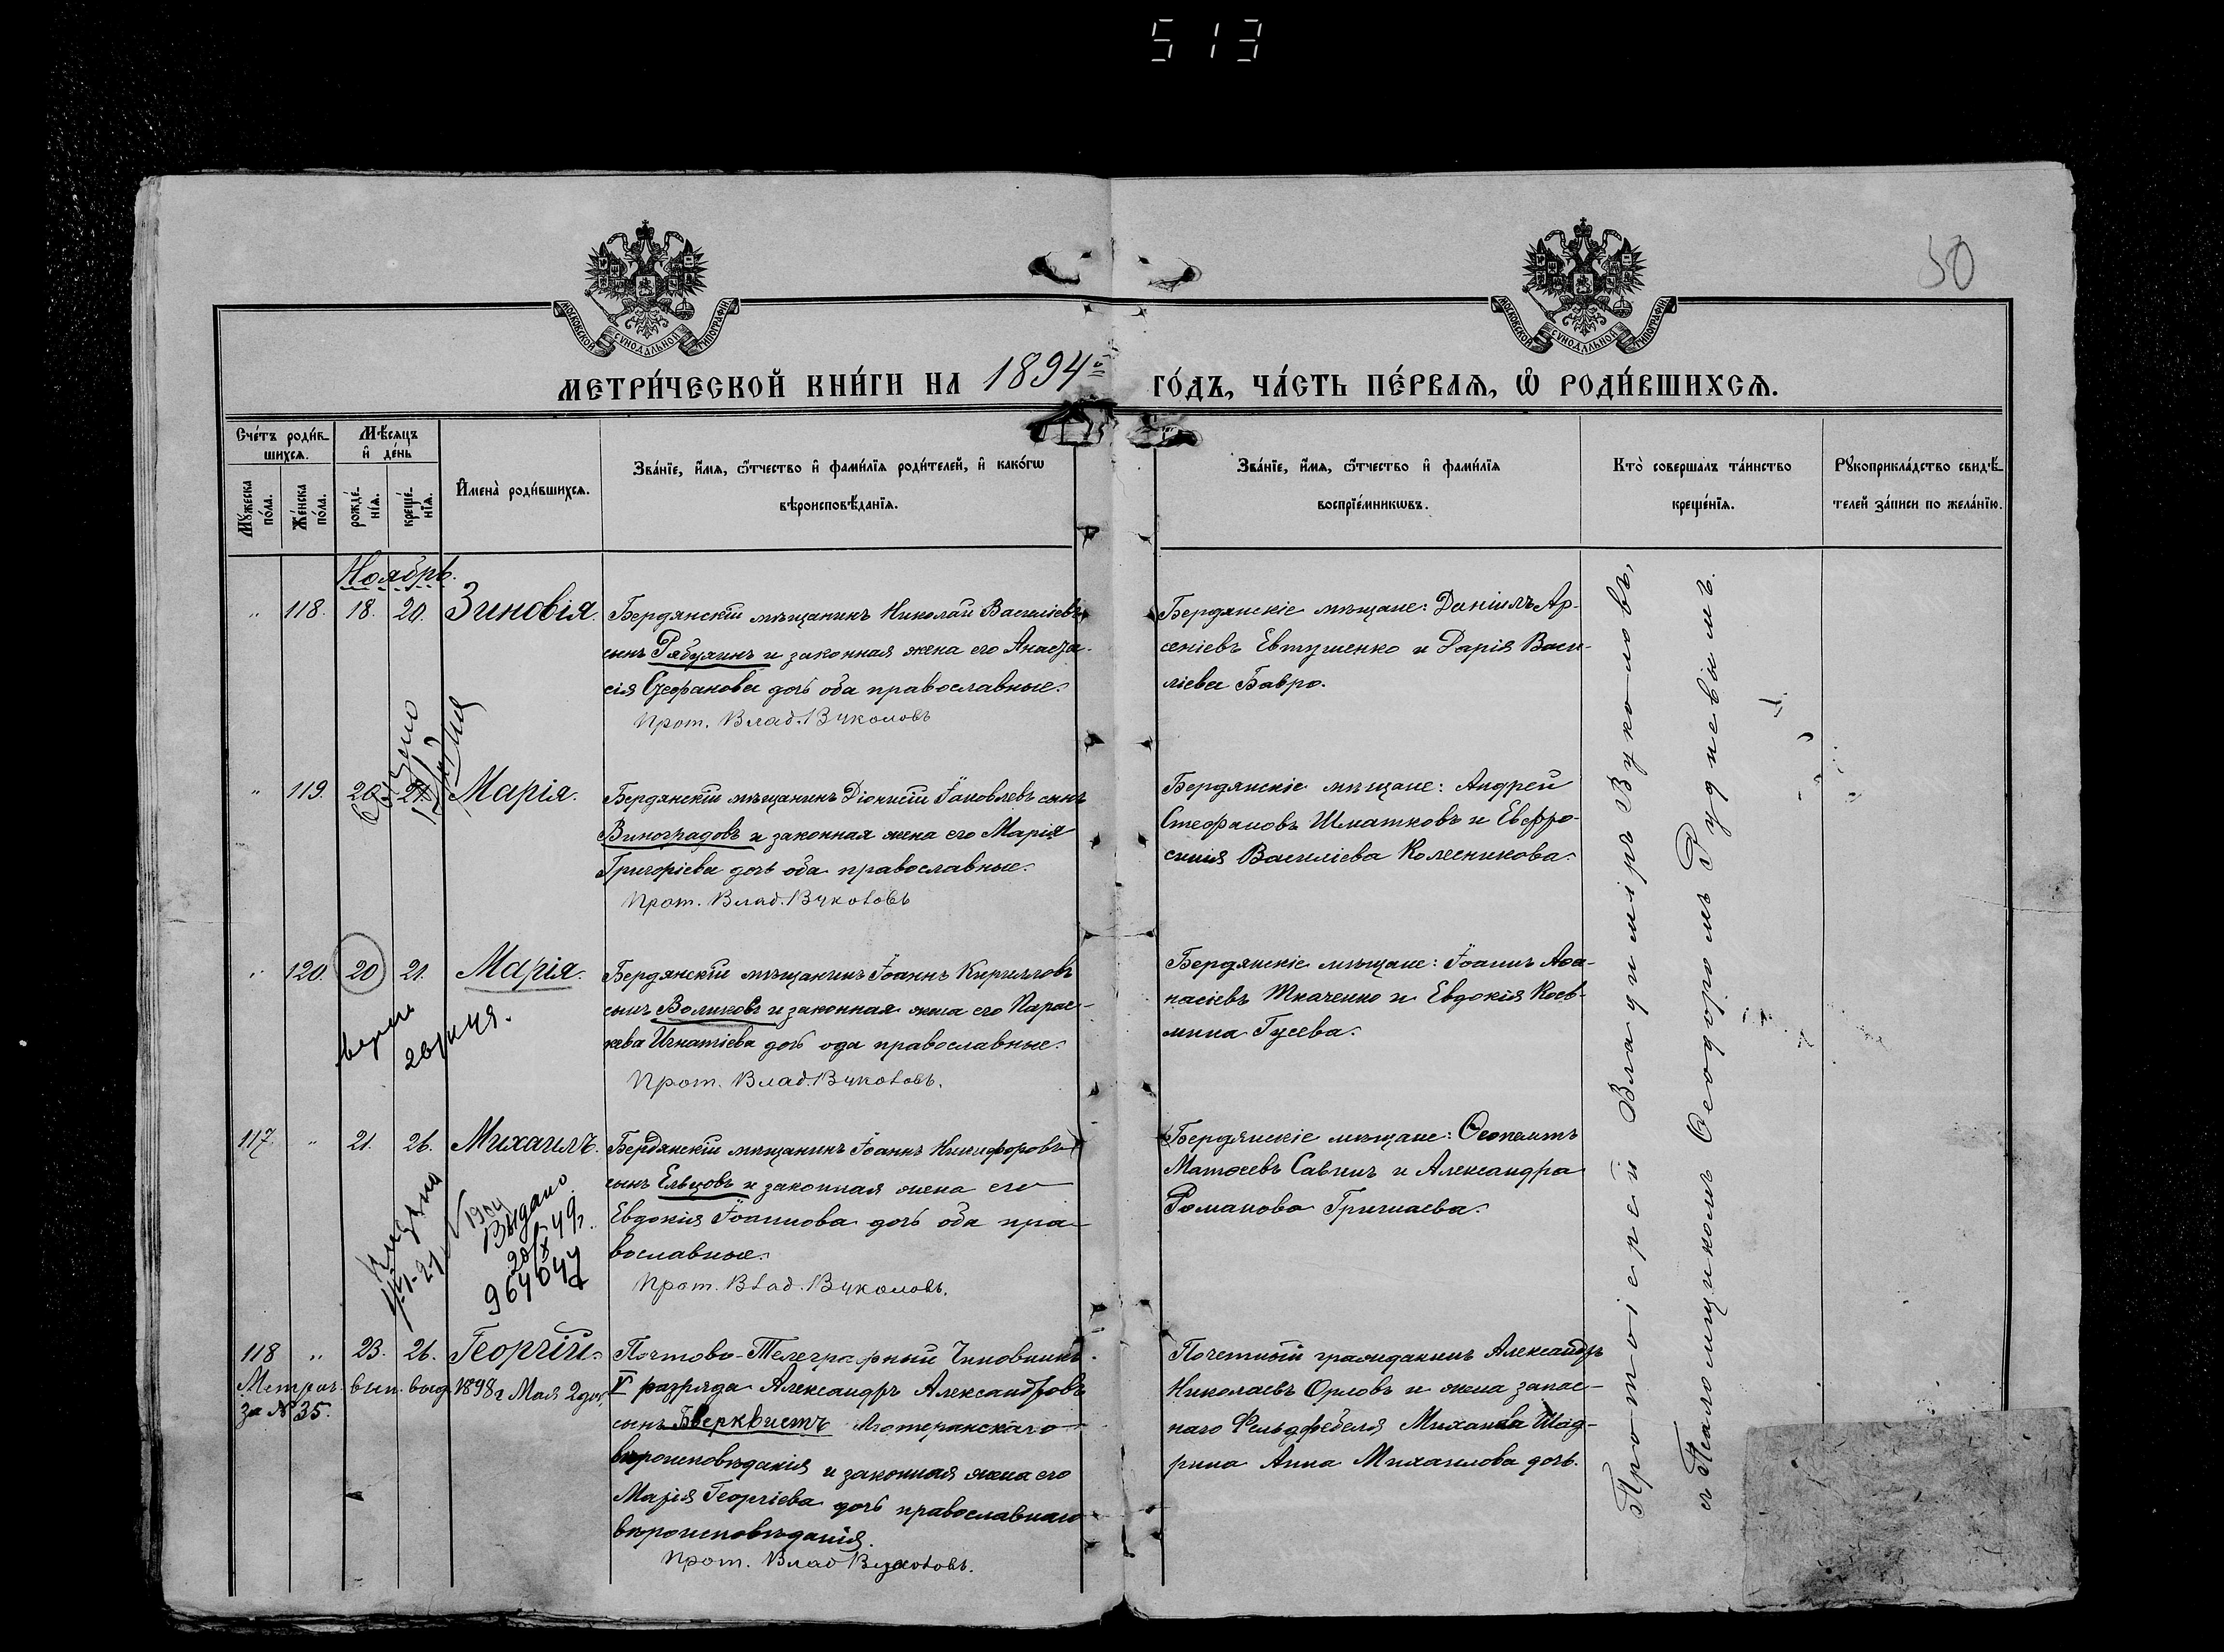 513
50
МОСКОВСКОЙ СѴНОДАЛЬНОЙ ТИПОГРАФІИ
МОСКОВСКОЙ СѴНОДАЛЬНОЙ ТИПОГРАФІИ
МЕТРИ́ЧЕСКОЙ КНИ́ГИ НА 1894й ГО́ДЪ, ЧА́СТЬ ПЕ́РВАѦ, Ѿ РОДИ́ВШИХСѦ.
Сче́тъ роди́в-
шихсѧ.
Мѣ́сѧцъ
и҆ де́нь
Мꙋ́жеска
по́ла.
Же́нска
по́ла.
рожде́-
нїѧ.
креще́-
нїѧ.
И҆мена̀ роди́вшихсѧ.
Зва́нїе, и҆́мѧ, ѻ҆́тчество и҆ фами́лїѧ роди́телей, и҆ како́гѡ
вѣроисповѣ́данїѧ.
Зва́нїе, и҆́мѧ, ѻ҆́тчество и҆ фами́лїѧ
воспрїе́мникѡвъ.
Кто̀ соверша́лъ та́инство
креще́нїѧ.
Рꙋкоприкла́дство свидѣ́-
телей за́писи по жела́нїю.
Ноябрь.
" 118. 18. 20. Зиновія.
Бердянскій мѣщанинъ Николай Васильевъ
сынъ Рябухинъ и законная жена его Анаста-
сія Стефанова дочь оба православные.
Прот. Влад. Вуколовъ
Бердянскіе мѣщане: Даніилъ Ар-
сеніевъ Евтушенко и Дарія Васи-
ліева Бавро.
" 119. 20. 21. Марія.
Бердянскій мѣщанинъ Діонисій Іаковлевъ сынъ
Виноградовъ и законная жена его Марія
Григоріева дочь оба православные.
Прот. Влад. Вуколовъ
Бердянскіе мѣщане: Андрей
Стефановъ Шматковъ и Евфро-
синія Василіева Колесникова.
" 120. 20 21. Марія.
Бердянскій мѣщанинъ Іоаннъ Кирилловъ
сынъ Воликовъ и законная жена его Парас-
кева Игнатіева дочь оба православные.
Прот. Влад. Вуколовъ.
Бердянскіе мѣщане: Іоаннъ Аѳа-
насіевъ Ткаченко и Евдокія Косъ-
мина Гусева.
117. " 21. 26. Михаилъ.
1904
Выдано
20/X 49г.
964047
Бердянскій мѣщанинъ Іоаннъ Никифоровъ
сынъ Ельцовъ и законная жена его
Евдокія Іоаннова дочь оба пра-
вославные.
Прот. Влад. Вуколовъ.
Бердянскіе мѣщане: Ѳеопемптъ
Матѳеевъ Савинъ и Александра
Романова Гришаева.
118 " 23. 26. Георгій.
Метрич. вып. выд. 1898г Мая 2 дня,
за № 35.
Почтово-Телеграфный Чиновникъ
V разряда Александръ Александровъ
сынъ Бверквистъ Лютеранскаго
вѣроисповѣданія и законная жена его
Марія Георгіева дочь православнаго
вѣроисповѣданія.
Прот. Влад. Вуколовъ.
Почетный гражданинъ Александръ
Николаевъ Орловъ и жена запас-
наго Фельдфебеля Михаила Шад-
рина Анна Михаилова дочь.
Протоіерей Владиміръ Вуколовъ,
съ Псаломщикомъ Ѳеодоромъ Рудневымъ.